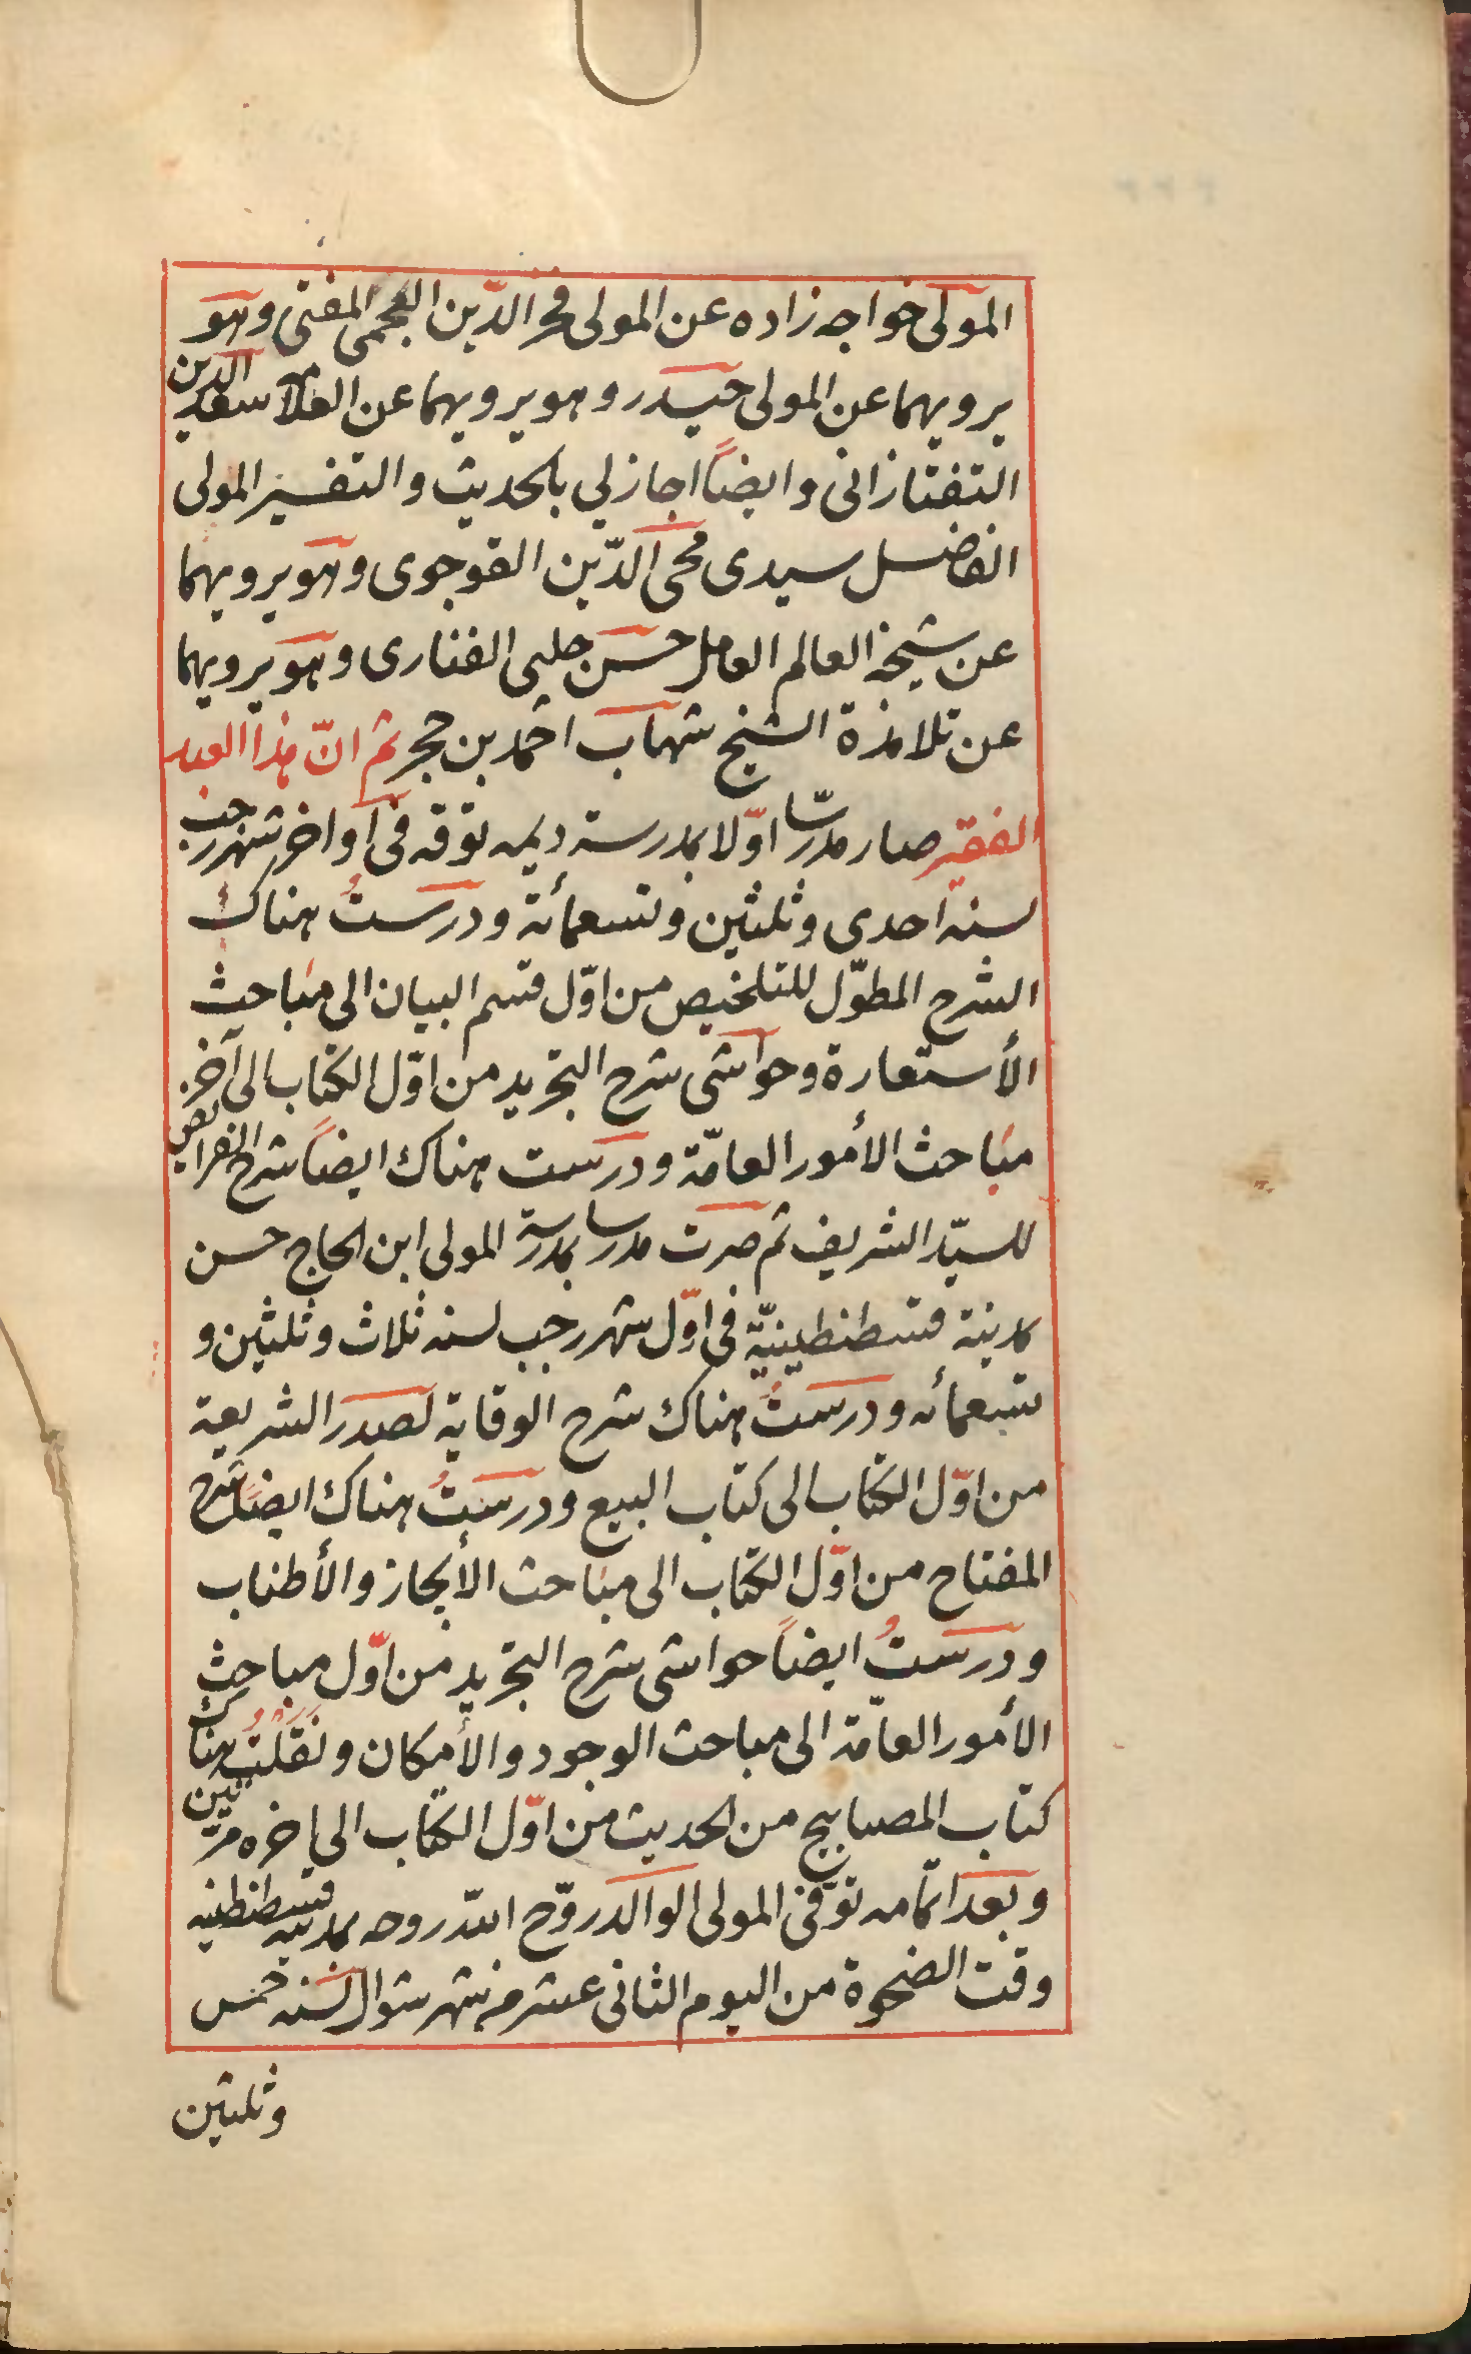 المولى خواجه زاده عن المولى فخر الدّين العجمى المفتى وهو
يرويهما عن المولى حيدر وهو يرويهما عن العلامة سعد الدين
التفتازانى وايضاً اجاز لي بالحديث والتفسير المولى
الفاضل سيدى محى الدّين القوجوى وهو يرويهما
عن شيخه العالم العامل حسن چلبى الفنارى وهو يرويهما
عن تلامذة الشيخ شهاب احمد بن حجر ثم انّ هذا العبد
الفقير صار مدرّسا اوّلا بمدرسة ديمه توقه فى اواخر شهر رجب
لسنه احدى وثلثين وتسعمائة ودرستُ هناك
الشرح المطوّل للتلخيص من اوّل قسم البيان الى مباحث
الأستعارة وحواشى شرح التجريد من اوّل الكتاب الى آخر
مباحث الأمور العامّة ودرست هناك ايضاً شرح الفرائض
للسيّد الشريف ثم صرت مدرسا بمدرسة المولى ابن الحاج حسن
بمدينة قسطنطينيّة فى اوّل شهر رجب لسنه ثلاث وثلثين و
تسعمائه ودرستُ هناك شرح الوقاية لصدر الشريعة
من اوّل الكتاب الى كتاب البيع ودرستُ هناك ايضاً شرح
المفتاح من اوّل الكتاب الى مباحث الأيجاز والأطناب
ودرستُ ايضاً حواشى شرح التجريد من اوّل مباحث
الأمور العامّة الى مباحث الوجود والأمكان ونقلتُ هناك
كتاب المصابيح من الحديث من اوّل الكتاب الى اخره مرتين
وبعد اتمامه توفى المولى الوالد روّح الله روحه بمدينه قسطنطنيه
وقت الضحوة من اليوم الثانى عشر من شهر شوال لسنه خمس
وثلثين